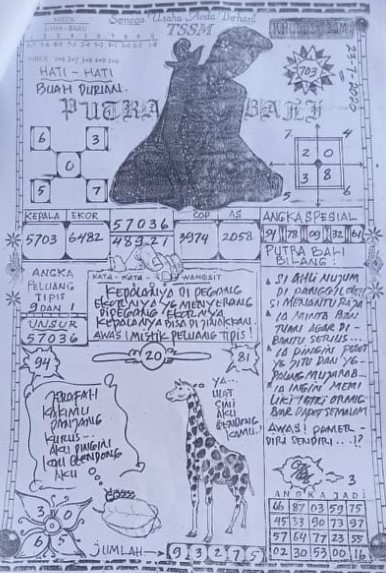 Semoga Usaha Anda Berhasil
TSSM
HATI - HATI
BUAH DURIAN.
703
PUTRA BALI
6 3
0
5 7
7 4
2 0
3 8
5 6
KEPALA EKOR
5703 6482
57036
48921
COP AS
3974 2058
ANGKA SPESIAL
91 78 09 32 61
PUTRA BALI
BILANG :
ANGKA
PELUANG
TIPIS
9 DAN 1
UNSUR
57036
KATA - KATA WANGSIT
KEPALANYA DI PEGANG
EKORNYA YG MENYERANG
DIPEGANG EKORNYA
KEPALANYA BISA DI JINAKKAN.
AWAS! MISTIK PELUANG TIPIS!
20
94
81
SI AHLI NUJUM
DI PANGGIL OLEH
SI MENANTU RAJA
IA MINTA BAN
TUAN AGAR DI-
BANTU SERIUS...
IA INGIN PELET
YG JITU DAN YG
PALING MUJARAB...
IA INGIN MEMI
LIKI ISTRI ORANG
BIAR DAPAT SEMALAM
AWAS! PAMER-
DIRI SENDIRI...!?
JERAFAH
KAKIMU
PANJANG
KURUS...
AKU INGIN
KAU GENDONG
AKU
YA...
ULAT
SINI
AKU
GENDONG
KAMU.!
3
3 0
5 7
JUMLAH
9 3 2 7 5
ANGKA JADI
66 87 03 59 75
45 33 90 73 97
57 64 77 23 55
02 30 53 00 16